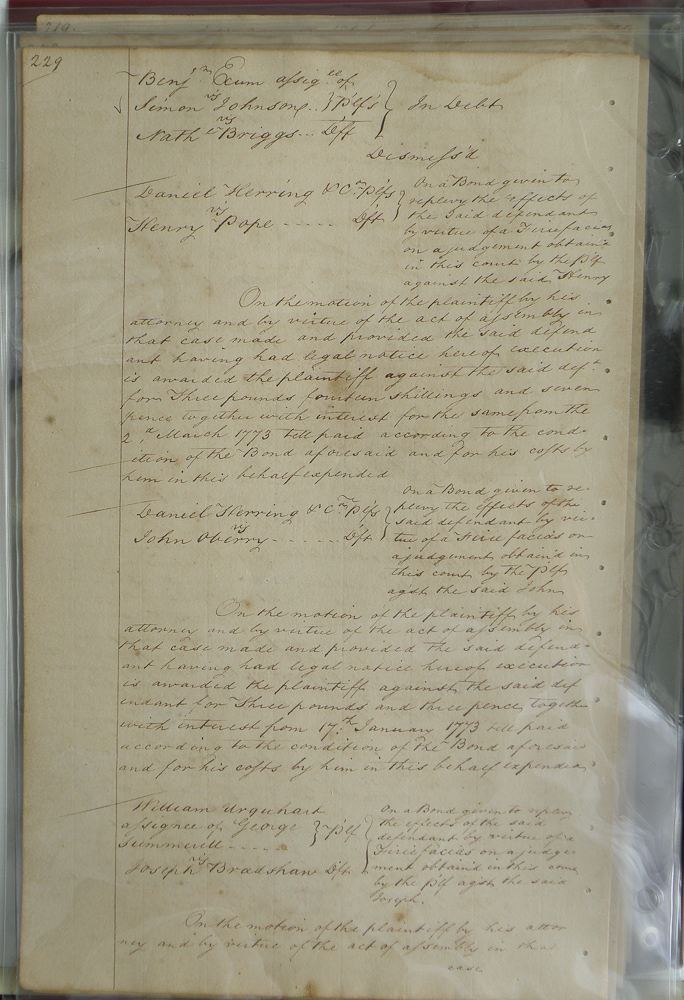 229
Benj.n Exum assig.ee of
Simon Johnson .. } Plf's } In Debt
vs
Nath.l Briggs ... Dft
Dismiss'd
Daniel Herring & C.o Plfs
vs
Henry Pope - - - - - Dft
On a Bond given to
replevy the effects of
the said defendant
by virtue of a Firie facias
on a judgement obtain'd
in this court by the Plf
against the said Henry
On the motion of the plaintiff by his
attorney and by virtue of the act of assembly in
that case made and provided the said defend
ant having had legal notice hereof execution
is awarded the plaintiff against the said def.t
for Three pounds fourteen shillings and seven
pence together with interest for the same from the
2.d March 1773 till paid according to the cond-
ition of the Bond aforesaid and for his costs by
him in this behalf expended
Daniel Herring & C.o Plfs
vs
John Oberry - - - - - - Dft
On a Bond given to re-
plevy the effects of the
said defendant by vir-
tue of a Firie facias on
a judgement obtain'd in
this court by the Plfs
agst the said John
On the motion of the plaintiff by his
attorney and by virtue of the act of assembly in
that case made and provided the said defend-
ant having had legal notice hereof execution
is awarded the plaintiff against the said def
endant for Three pounds and three pence together
with interest from 17.th January 1773 till paid
according to the condition of the Bond aforesaid
and for his costs by him in this behalf expended
William Urquhart
assignee of George } Plf
Summerell - - - - -
vs
Joseph Bradshaw Dft.
On a Bond given to replevy
the effects of the said
defendant by virtue of a
Firie facias on a judge-
ment obtain'd in this court
by the Plf agst the said
Joseph.
On the motion of the plaintiff by his attor
ney and by virtue of the act of assembly in that
case